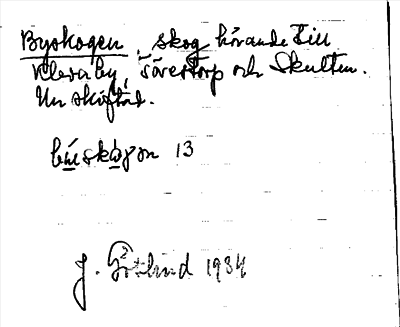 Byskogen, skog hörande till
Klevaby, Sörestorp och Skulten.
Nu skiftad.
býskògọn 13
J. Götlind 1934